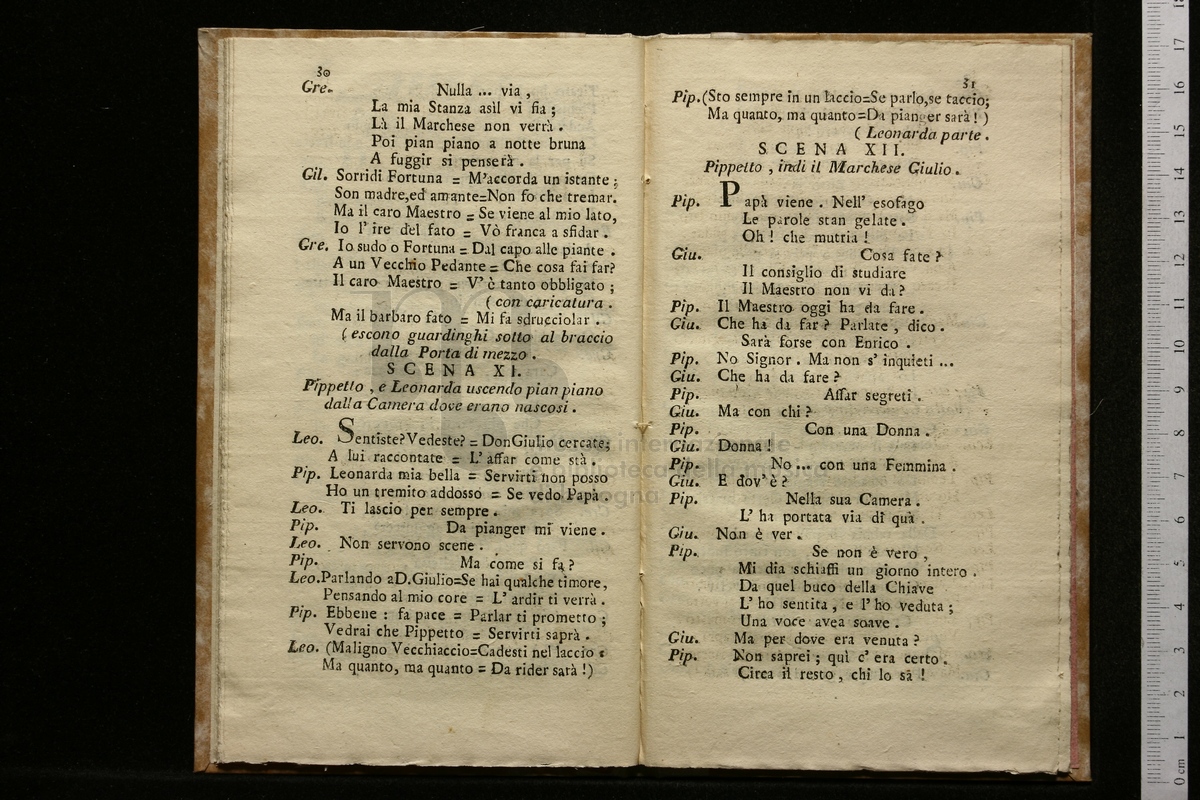 30
Gre. Nulla ... via ,
La mia Stanza asil vi fia ;
Là il Marchese non verrà .
Poi pian piano a notte bruna
A fuggir si penserà .
Gil. Sorridi Fortuna = M'accorda un istante ;
Son madre,ed amante=Non fo che tremar.
Ma il caro Maestro = Se viene al mio lato,
Io l' ire del fato = Vò franca a sfidar .
Gre. Io sudo o Fortuna = Dal capo alle piante .
A un Vecchio Pedante = Che cosa fai far?
Il caro Maestro = V' è tanto obbligato ;
( con caricatura .
Ma il barbaro fato = Mi fa sdrucciolar .
( escono guardinghi sotto al braccio
dalla Porta di mezzo .
SCENA XI.
Pippetto , e Leonarda uscendo pian piano
dalla Camera dove erano nascosi .
Leo. Sentiste?Vedeste? = DonGiulio cercate;
A lui raccontate = L' affar come stà .
Pip. Leonarda mia bella = Servirti non posso
Ho un tremito addosso = Se vedo Papà .
Leo. Ti lascio per sempre .
Pip. Da pianger mi viene .
Leo. Non servono scene .
Pip. Ma come si fa ?
Leo.Parlando aD.Giulio=Se hai qualche timore,
Pensando al mio core = L' ardir ti verrà .
Pip. Ebbene : fa pace = Parlar ti prometto ;
Vedrai che Pippetto = Servirti saprà .
Leo. (Maligno Vecchiaccio=Cadesti nel laccio :
Ma quanto, ma quanto = Da rider sarà !)
31
Pip.(Sto sempre in un laccio=Se parlo,se taccio;
Ma quanto, ma quanto=Da pianger sarà ! )
( Leonarda parte .
SCENA XII.
Pippetto , indi il Marchese Giulio .
Pip. Papà viene . Nell' esofago
Le parole stan gelate .
Oh ! che mutria !
Giu. Cosa fate ?
Il consiglio di studiare
Il Maestro non vi da ?
Pip. Il Maestro oggi ha da fare .
Giu. Che ha da far ? Parlate , dico .
Sarà forse con Enrico .
Pip. No Signor . Ma non s' inquieti ...
Giu. Che ha da fare ?
Pip. Affar segreti .
Giu. Ma con chi ?
Pip. Con una Donna .
Giu. Donna !
Pip. No ... con una Femmina .
Giu. E dov' è ?
Pip. Nella sua Camera .
L' ha portata via di quà .
Giu. Non è ver .
Pip. Se non è vero ,
Mi dia schiaffi un giorno intero .
Da quel buco della Chiave
L' ho sentita , e l' ho veduta ;
Una voce avea soave .
Giu. Ma per dove era venuta ?
Pip. Non saprei ; quì c' era certo .
Circa il resto , chi lo sà !